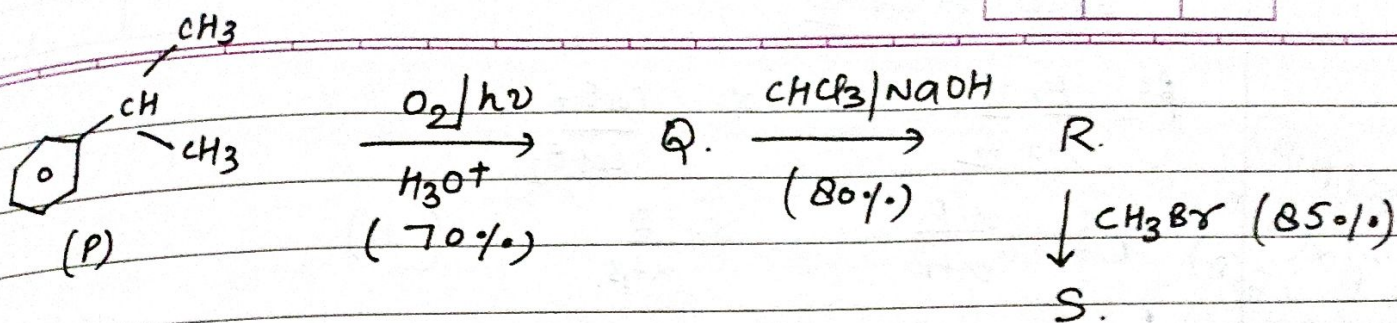 CH3
CH
CH3
(P)
O2/hν
H3O+
(70%)
Q.
CHCl3/NaOH
(80%)
R.
CH3Br (85%)
S.